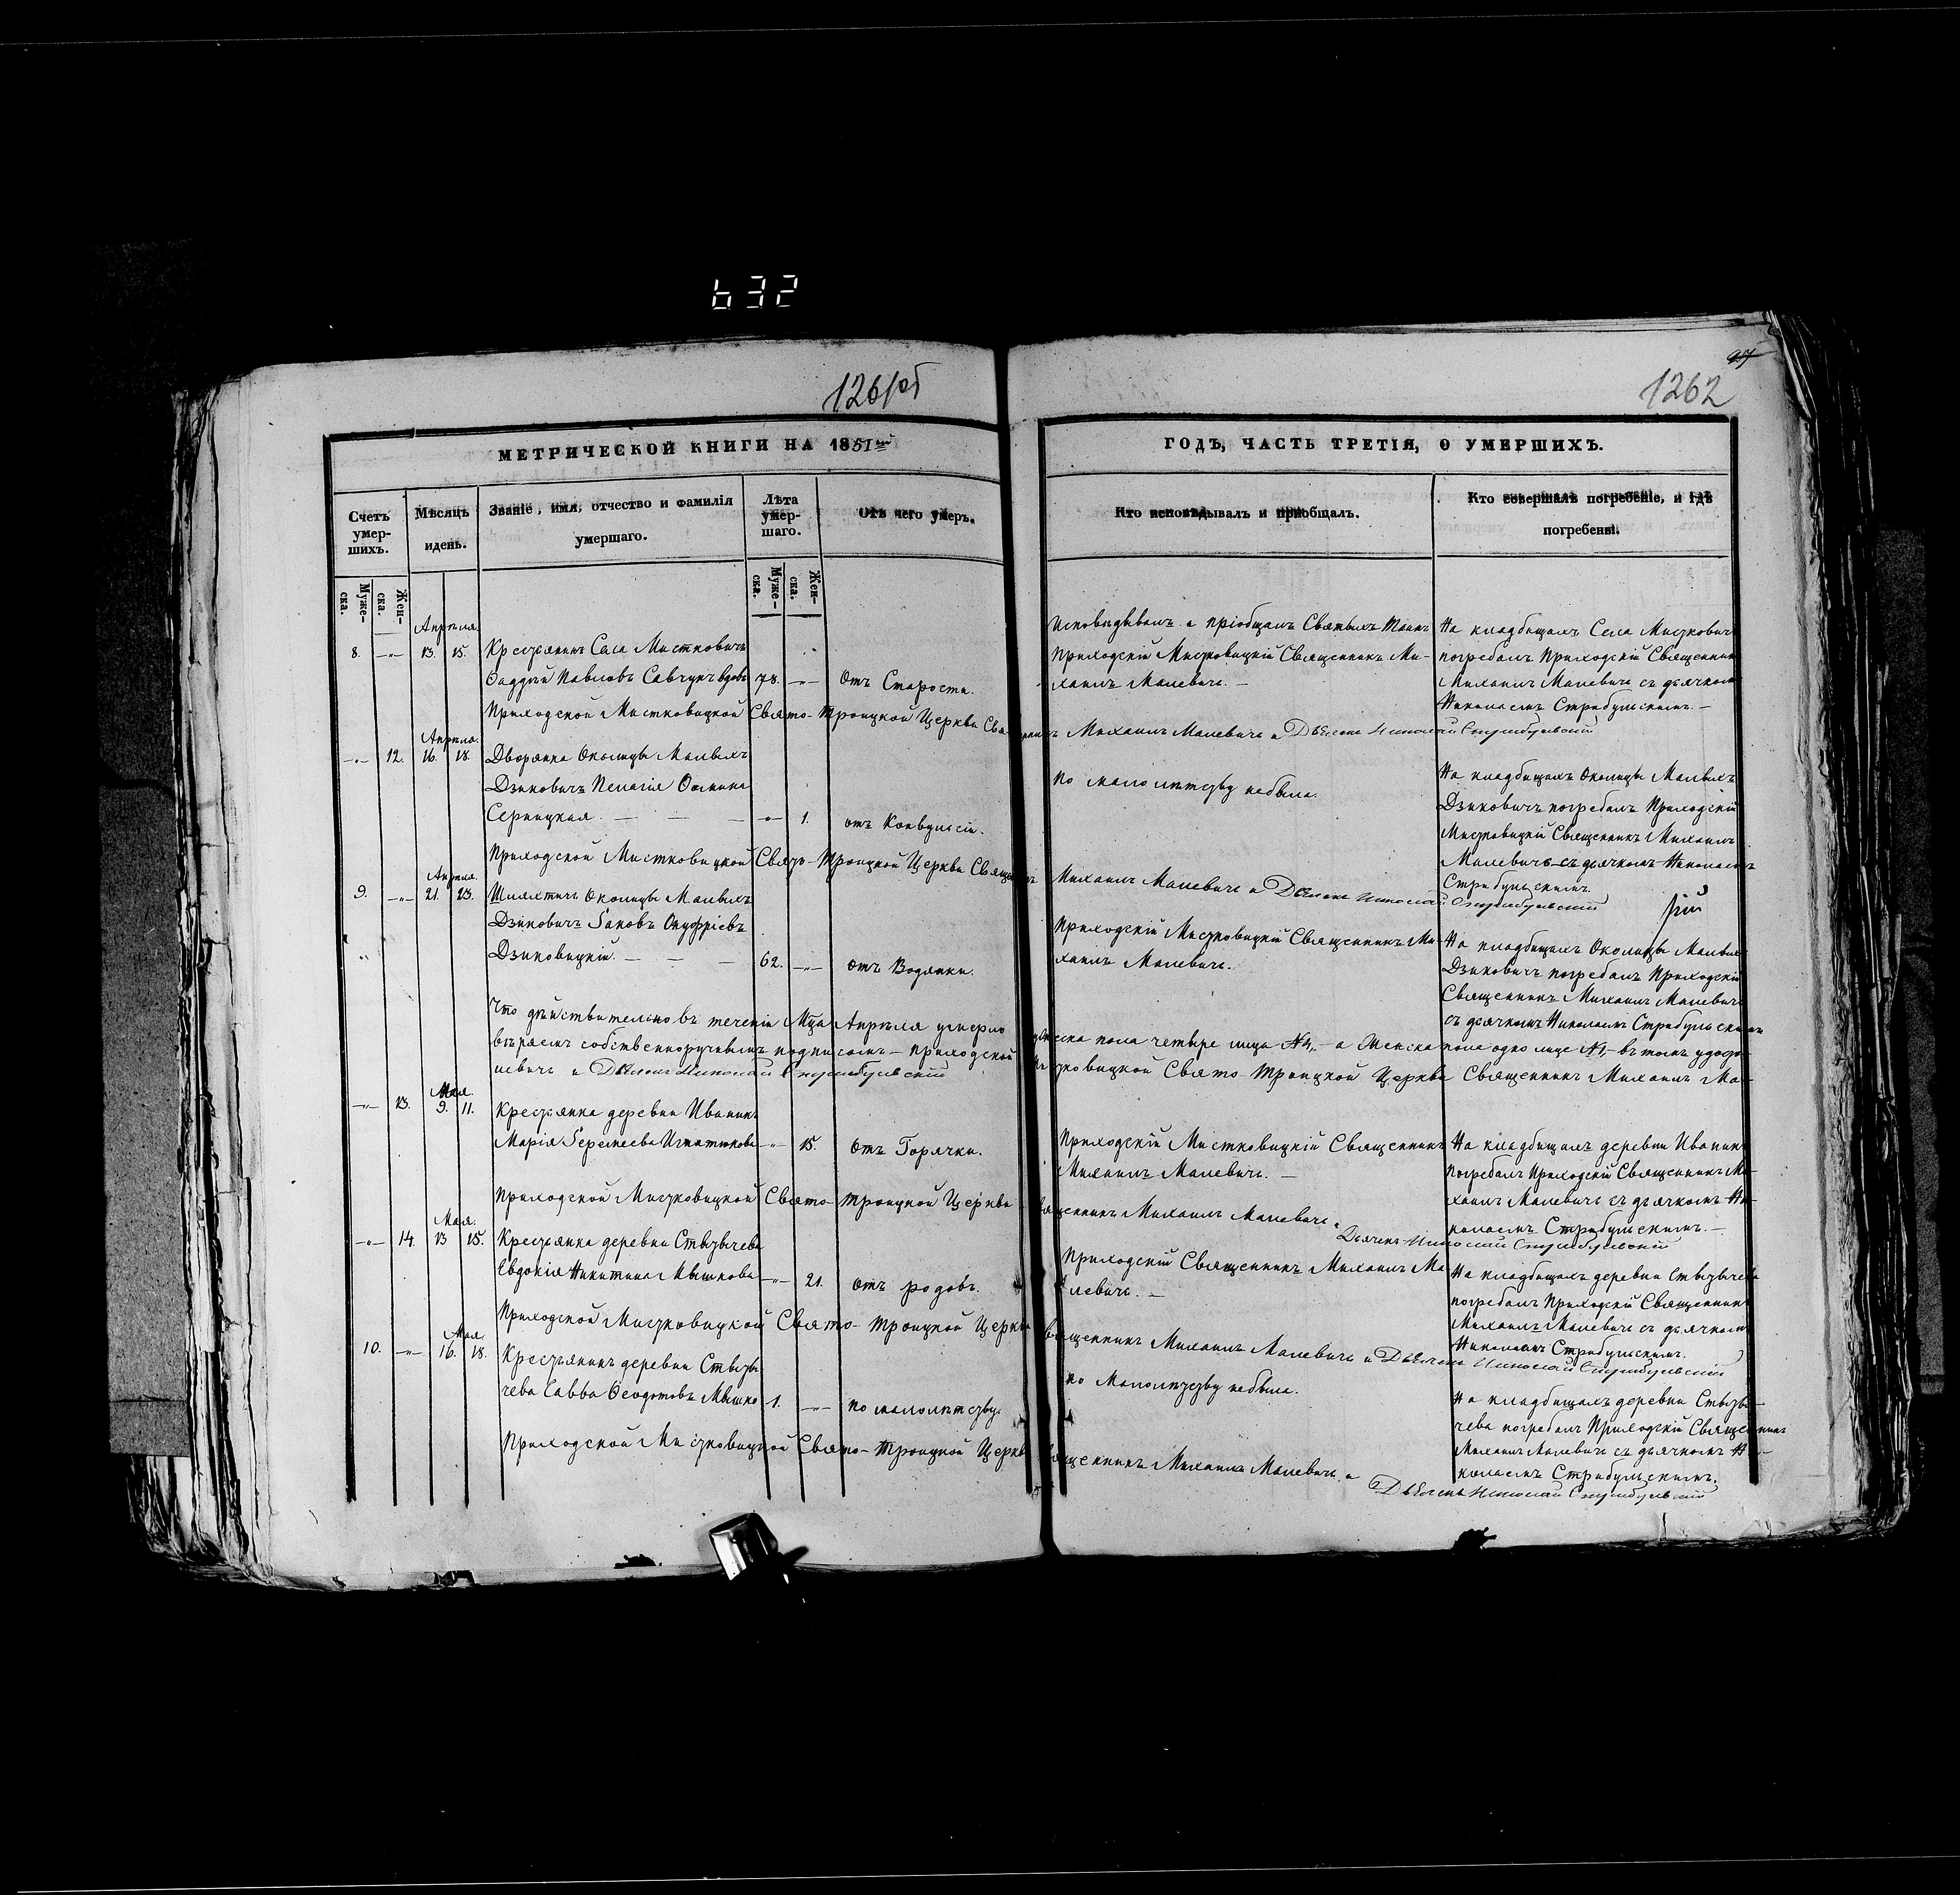 632
1261об
1262
МЕТРИЧЕСКОЙ КНИГИ НА 1851й
ГОДЪ, ЧАСТЬ ТРЕТІЯ, О УМЕРШИХЪ.
Счетъ умер-
шихъ.
Мѣсяцъ
идень.
Званіе, имя, отчество и фамилія
умершаго.
Лѣта
умер-
шаго.
Отъ чего умеръ.
Кто исповѣдывалъ и пріобщалъ.
Кто совершалъ погребеніе, и гдѣ
погребены.
Муже-
ска.
Жен-
ска.
Муже-
ска.
Жен-
ска.
Апрѣля
8. —„— 13. 15. Крестьянинъ Села Мистковичъ
Фаддѣй Павловъ Савчукъ вдовъ 78. —„— Отъ Старости.
Исповѣдывалъ и пріобщалъ Святыхъ Таинъ
Приходскій Мистковицкій Священникъ Ми-
хаилъ Малевичъ. —
На кладбищахъ Села Мистковичъ
погребалъ Приходскій Священникъ
Михаилъ Малевичъ съ дьячкомъ
Николаемъ Стрибульскимъ. —
Приходской Мистковицкой Свято-Троицкой Церкви Священникъ Михаилъ Малевичъ и Дьячекъ Николай Стрибульскій
Апрѣля
—„— 12. 16. 18. Дворянка Околицы Малыхъ
Дзиковичъ Пелагія
Серницкая. — — — —„— 1. отъ Конвульсіи.
По малолѣтству небыла.
На кладбищахъ Околицы Малыхъ
Дзиковичъ погребалъ Приходскій
Мистковицкій Священникъ Михаилъ
Малевичъ съ дьячкомъ Николаемъ
Стрибульскимъ.
Приходской Мистковицкой Свято-Троицкой Церкви Священникъ Михаилъ Малевичъ и Дьячекъ Николай Стрибульскій
Апрѣля
9. —„— 21. 23. Шляхтичъ Околицы Малыхъ
Дзиковичъ Іаковъ Онуфріевъ
Дзиковицкій. — — — 62. —„— отъ Водянки.
Приходскій Мистковицкій Священникъ Ми-
хаилъ Малевичъ.
На кладбищахъ Околицы Малыхъ
Дзиковичъ погребалъ Приходскій
Священникъ Михаилъ Малевичъ
съ дьячкомъ Николаемъ Стрибульскимъ
Что дѣйствительно въ теченіи Мца Апрѣля умерло мужеска пола четыре лица №4,- а Женска пола одно лице №1,- въ томъ удосто-
вѣряемъ собственноручнымъ подписомъ — Приходской Мистковицкой Свято-Троицкой Церкви Священникъ Михаилъ Ма-
левичъ и Дьячекъ Николай Стрибульскій
Мая
—„— 13. 9. 11. Крестьянка деревни Иваникъ
Марія Іеремеева Игнатюкова —„— 15. Отъ Горячки.
Приходскій Мистковицкій Священникъ
Михаилъ Малевичъ. —
На кладбищахъ деревни Иваникъ
погребалъ Приходскій Священникъ Ми-
хаилъ Малевичъ съ дьячкомъ Ни-
колаемъ Стрибульскимъ. —
Приходской Мистковицкой Свято-Троицкой Церкви Священникъ Михаилъ Малевичъ и
Дьячекъ Николай Стрибульскій
Мая.
—„— 14. 13 15. Крестьянка деревни Ствычева
Евдокія Никитина Мышкова —„— 21. отъ родовъ.
Приходскій Священникъ Михаилъ Ма-
левичъ. —
На кладбищахъ деревни Ствычева
погребалъ Приходскій Священникъ
Михаилъ Малевичъ съ дьячкомъ
Николаемъ Стрибульскимъ.
Приходской Мистковицкой Свято-Троицкой Церкви Священникъ Михаилъ Малевичъ и Дьячекъ Николай Стрибульскій
Мая.
10. —„— 16. 18. Крестьянинъ деревни Ствы-
чева Савва Ѳеодотовъ Мышко 1. —„— по малолѣтству.
по Малолѣтству небыла.
На кладбищахъ деревни Ствы-
чева погребалъ Приходскій Священникъ
Михаилъ Малевичъ съ дьячкомъ Ни-
колаемъ Стрибульскимъ.
Приходской Мистковицкой Свято-Троицкой Церкви Священникъ Михаилъ Малевичъ и
Дьячекъ Николай Стрибульскій